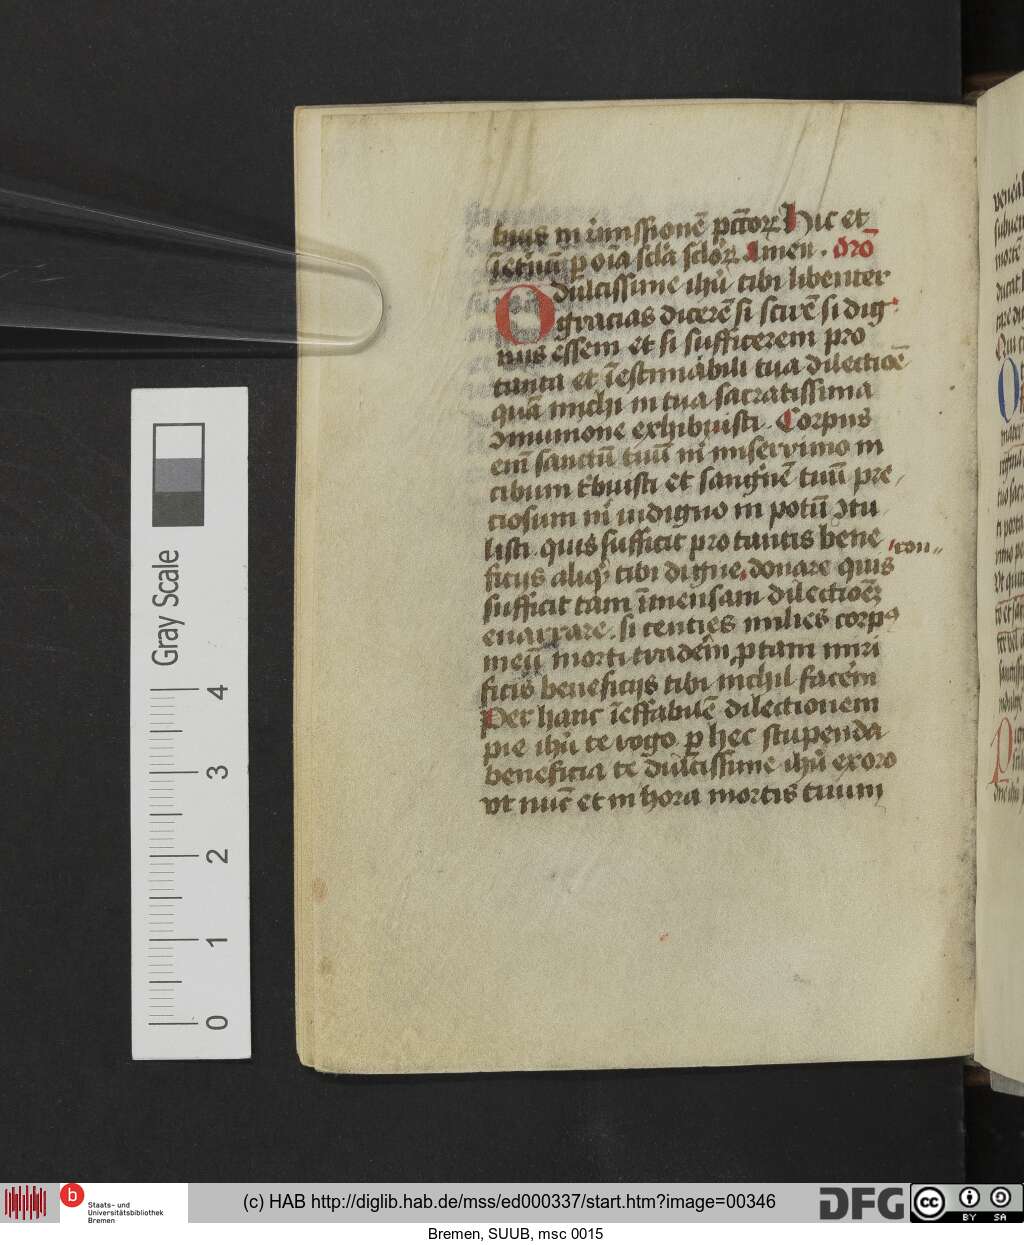 bus in remissionē pctōꝝ Hic et
ī et'nū p oīa sclā sclōꝝ Amen . Oro
O dulcissime ihū tibi libenter
gracias dicerē si scirē si dig
nus essem et si sufficerem pro
tanta et īestimabili tua dilectiōe
quā michi in tua sacratissima
ꝯmunione exhibuisti . Corpus
em̄ sanctū tuū m̄ miserrimo in
cibum t'buisti et sanguīē tuū pre
ciosum m̄ indigno in potū ꝯtu
listi . quis sufficit pro tantis bene
ficijs aliqͥ tibi digne donare quis
con
sufficit tam īmensam dilectioēꝫ
enarrare . si centies milies corpꝰ
meū morti traderm̄ ptam miri
ficis beneficijs tibi michil facēm
Per hanc īeffabilē dilectionem
pie ihū te rogo p hec stupenda
beneficia te dulcissime ihū exoro
vt nūc et in hora mortis tuum
Gray Scale
4
3
2
1
0
b
Staats- und
Universitätsbibliothek
Bremen
(c) HAB http://diglib.hab.de/mss/ed000337/start.htm?image=00346
DFG
cc
BY SA
Bremen, SUUB, msc 0015